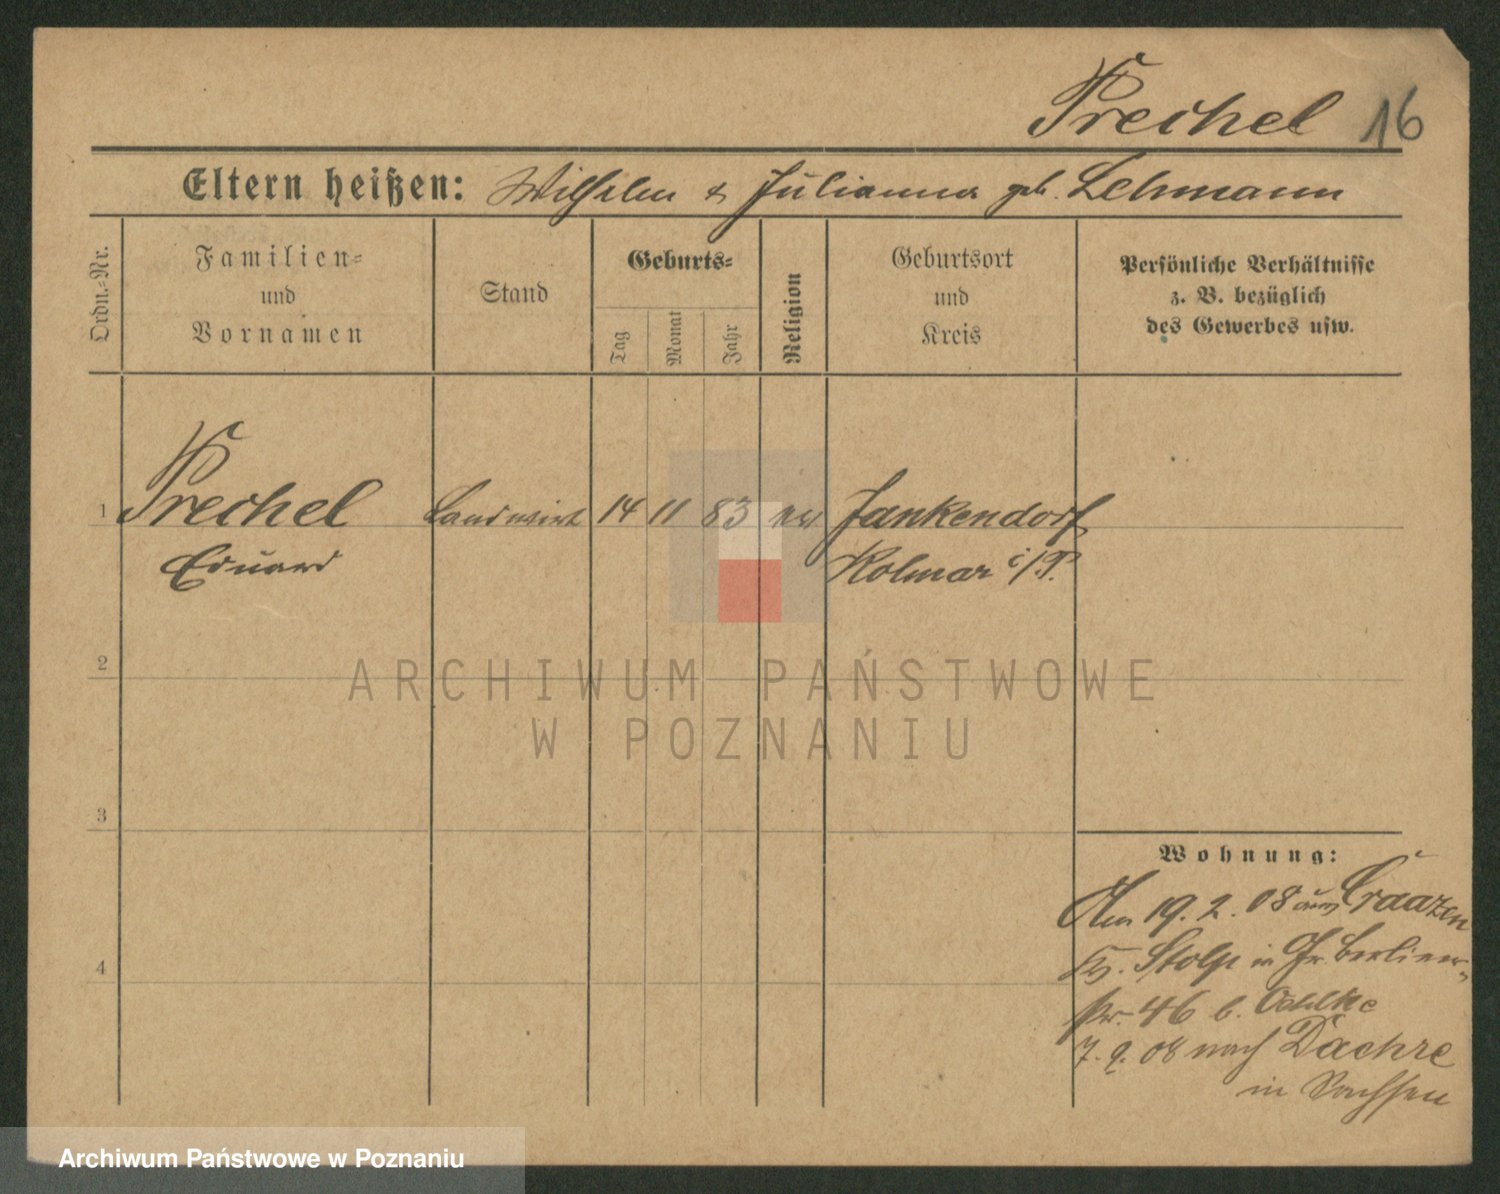 Prechel 16
Eltern heißen: Wilhelm & Julianna geb. Lehmann
Ordn.-Nr.
Familien-
und
Vornamen
Stand
Geburts-
Tag
Monat
Jahr
Religion
Geburtsort
und
Kreis
Persönliche Verhältnisse
z. B. bezüglich
des Gewerbes usw.
1 Prechel Landwirt 14 11 83 ev Jankendorf
Eduard Kolmar i/P.
2
ARCHIWUM PAŃSTWOWE
W POZNANIU
3
Wohnung:
Am 19. 2. 08 aus Craazen
Stolp in Berliner-
4
str. 46 b.
7. 9. 08 nach Daehre
in Sachsen
Archiwum Państwowe w Poznaniu